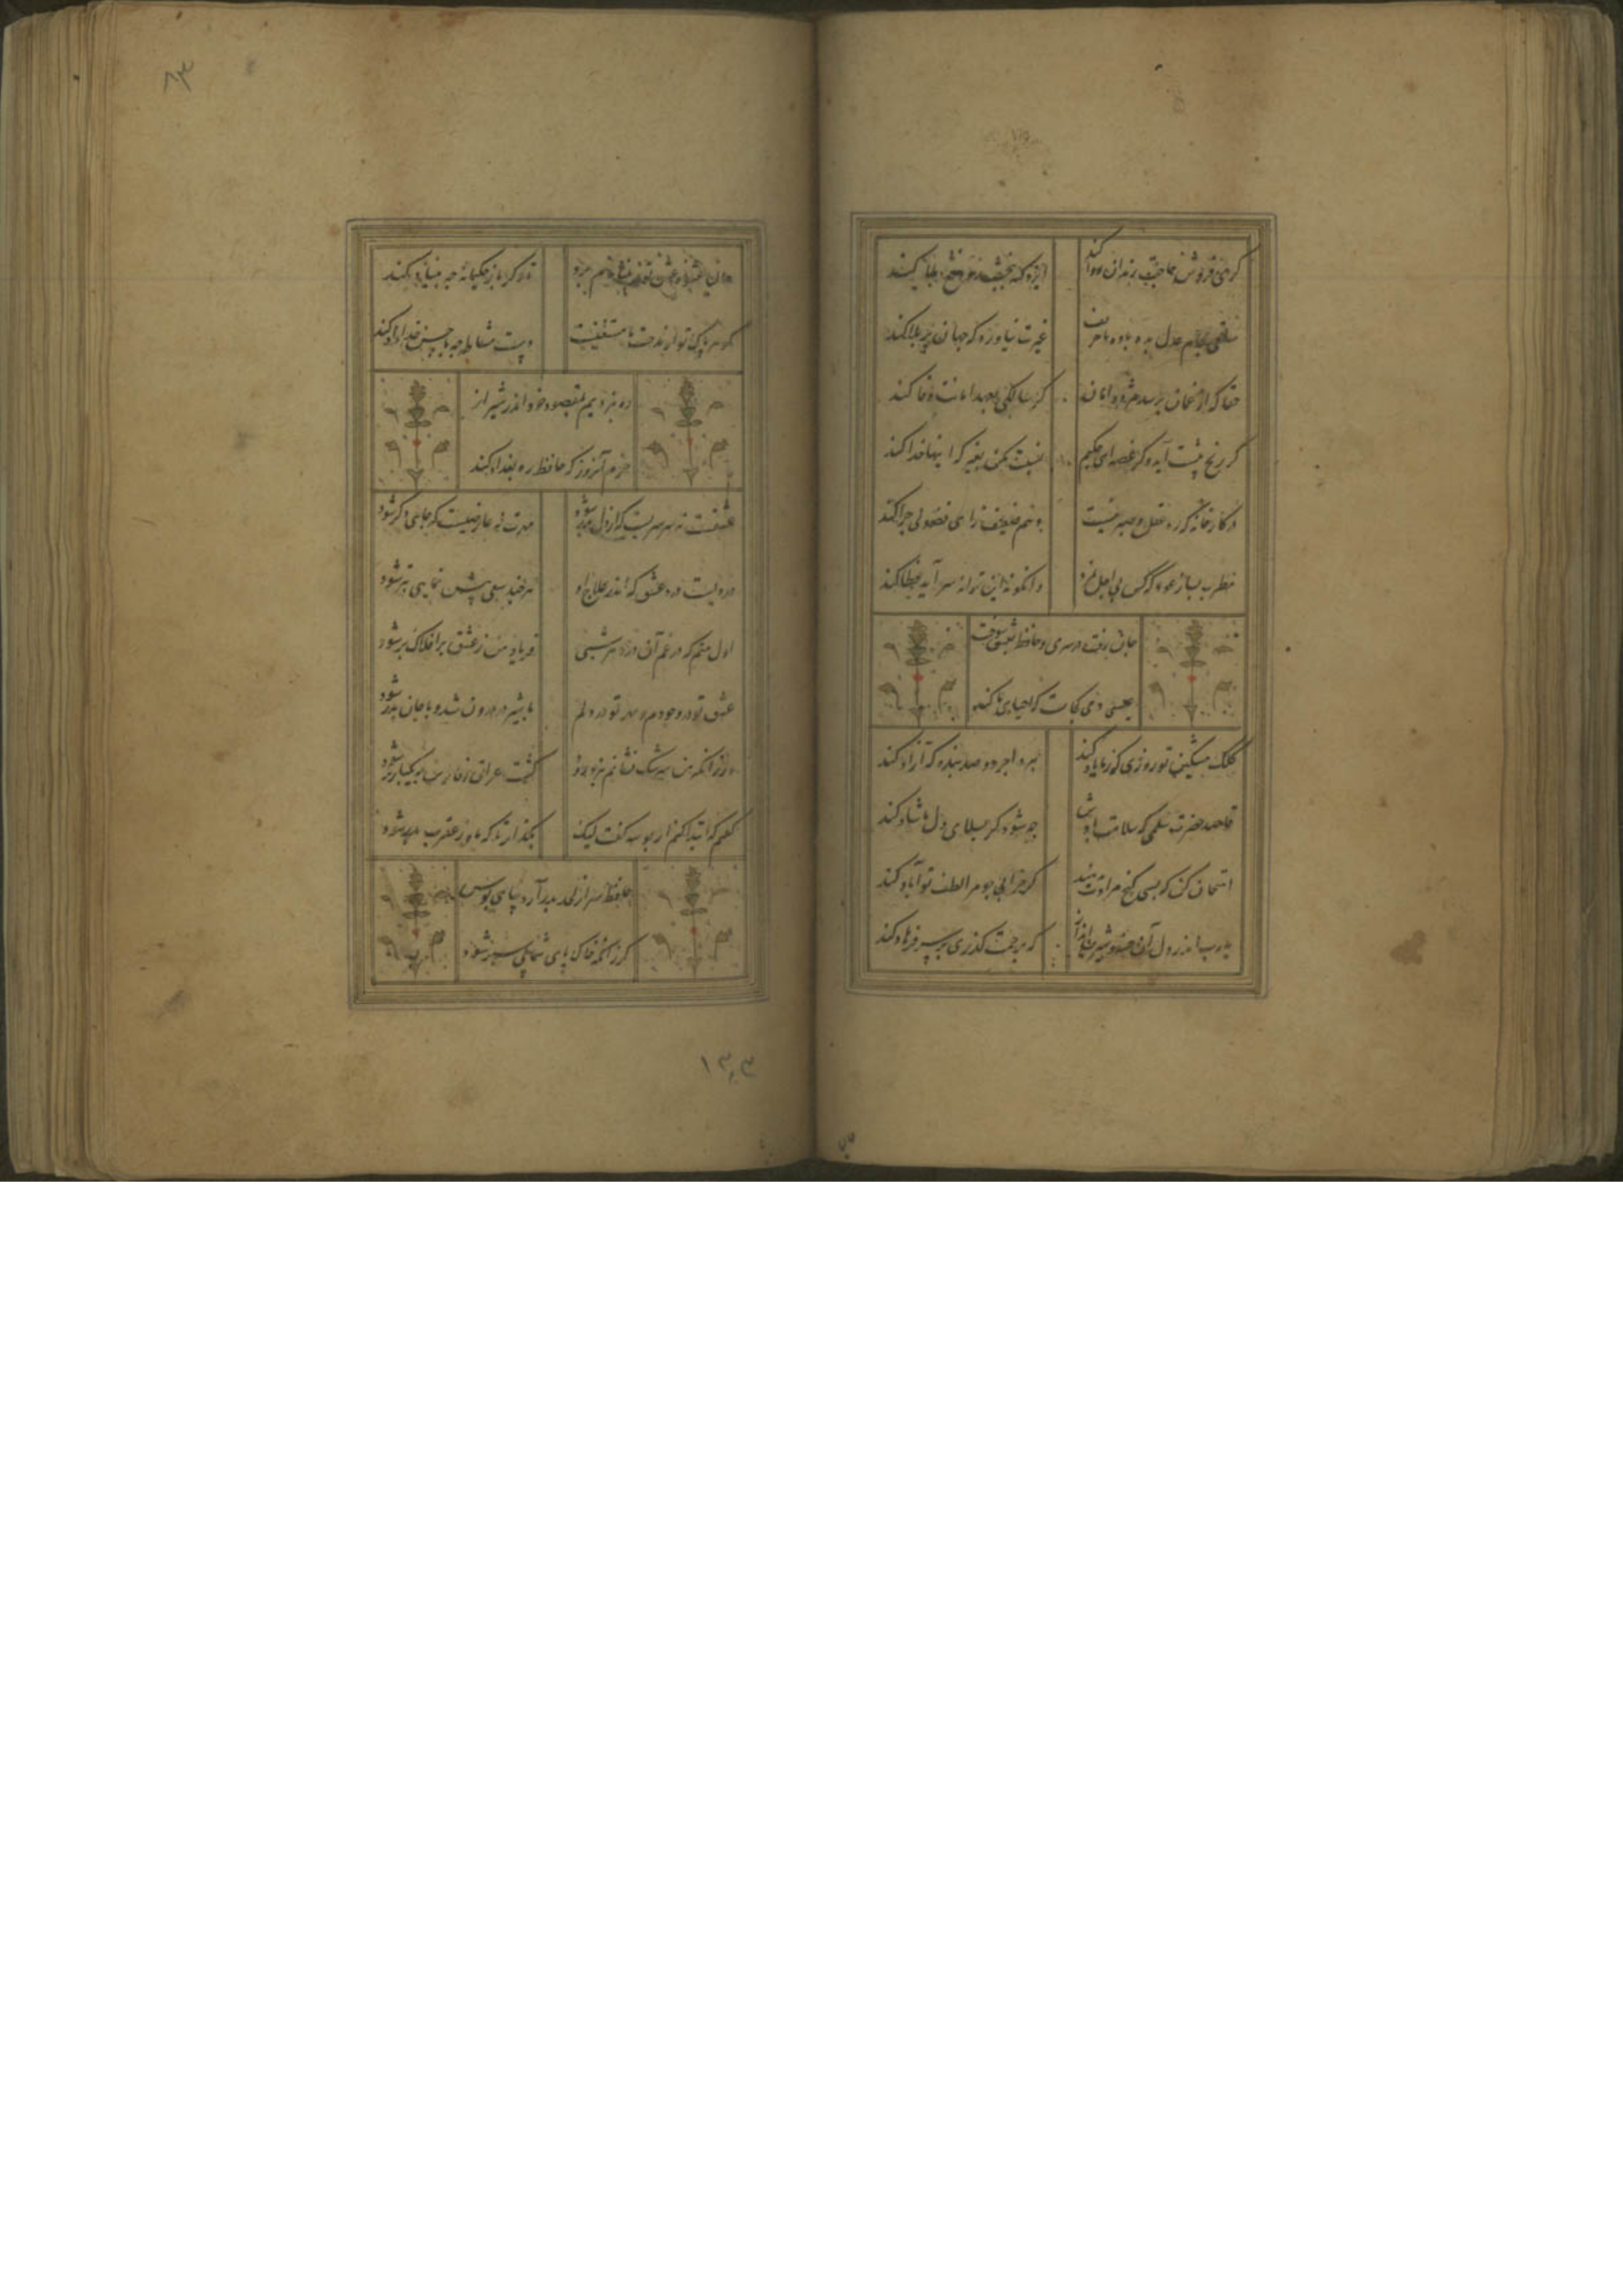 کر می فروش حاجت رندان روا کند
ایزد کنه ببخشد و دفع بلا کند
ساقی بجام عدل بده باده تا حریف
غیرت نیاورد که جهان پر بلا کند
حقا کز غمان برسد مژده امان
کر سالکی بعهد امانت وفا کند
کر رنج پیشت آید و کر غصه ای حکیم
نسبت مکن بغیر که اینها خدا کند
در کارخانه که ره عقل و صبر نیست
وهم ضعیف رای فضولی چرا کند
مطرب بساز عود که کس بی اجل نمرد
وانکو نه این ترانه سراید خطا کند
جان رفت در سر می و حافظ بعشق سوخت
عیسی دمی کجاست که احیای ما کند
کلک مشکین تو روزی که ز ما یاد کند
ببرد اجر دو صد بنده که آزاد کند
قاصد حضرت سلمی که سلامت بادش
چه شود کر بسلامی دل ما شاد کند
امتحان کن که بسی کنج مرادت بدهند
کر خرابی چو مرا لطف تو آباد کند
یارب اندر دل آن خسرو شیرین انداز
که برحمت کذری بر سر فرهاد کند
حالیا عشوه عشق تو ز بنیادم برد
تا دکر باز حکیمانه چه بنیاد کند
کوهر پاک تو از مدحت ما مستغنیست
دست مشاطه چه با حسن خداداد کند
ره نبردیم بمقصود خود اندر شیراز
خرم آنروز که حافظ ره بغداد کند
عشقت نه سرسریست که از دل بدر شود
مهرت نه عارضیست که جای دکر شود
دردیست درد عشق که اندر علاج او
هر چند سعی پیش نمایی بتر شود
اول منم که در غم آن در هر شبی
فریاد من ز عشق بر افلاک بر شود
عشق تو در وجودم و مهر تو در دلم
با شیر در درون شد و با جان بدر شود
ور زانکه من سرشک فشانم بزنده رود
کشت عراق و فارس بیکبار تر شود
کفتم که ابتدا کنم از بوسه کفت لیک
بکذار تا که ماه ز عقرب بدر شود
حافظ سر از لحد بدر آرد بپای بوس
کر زانکه خاک پای شما پی سپر شود
۱۳۴۳